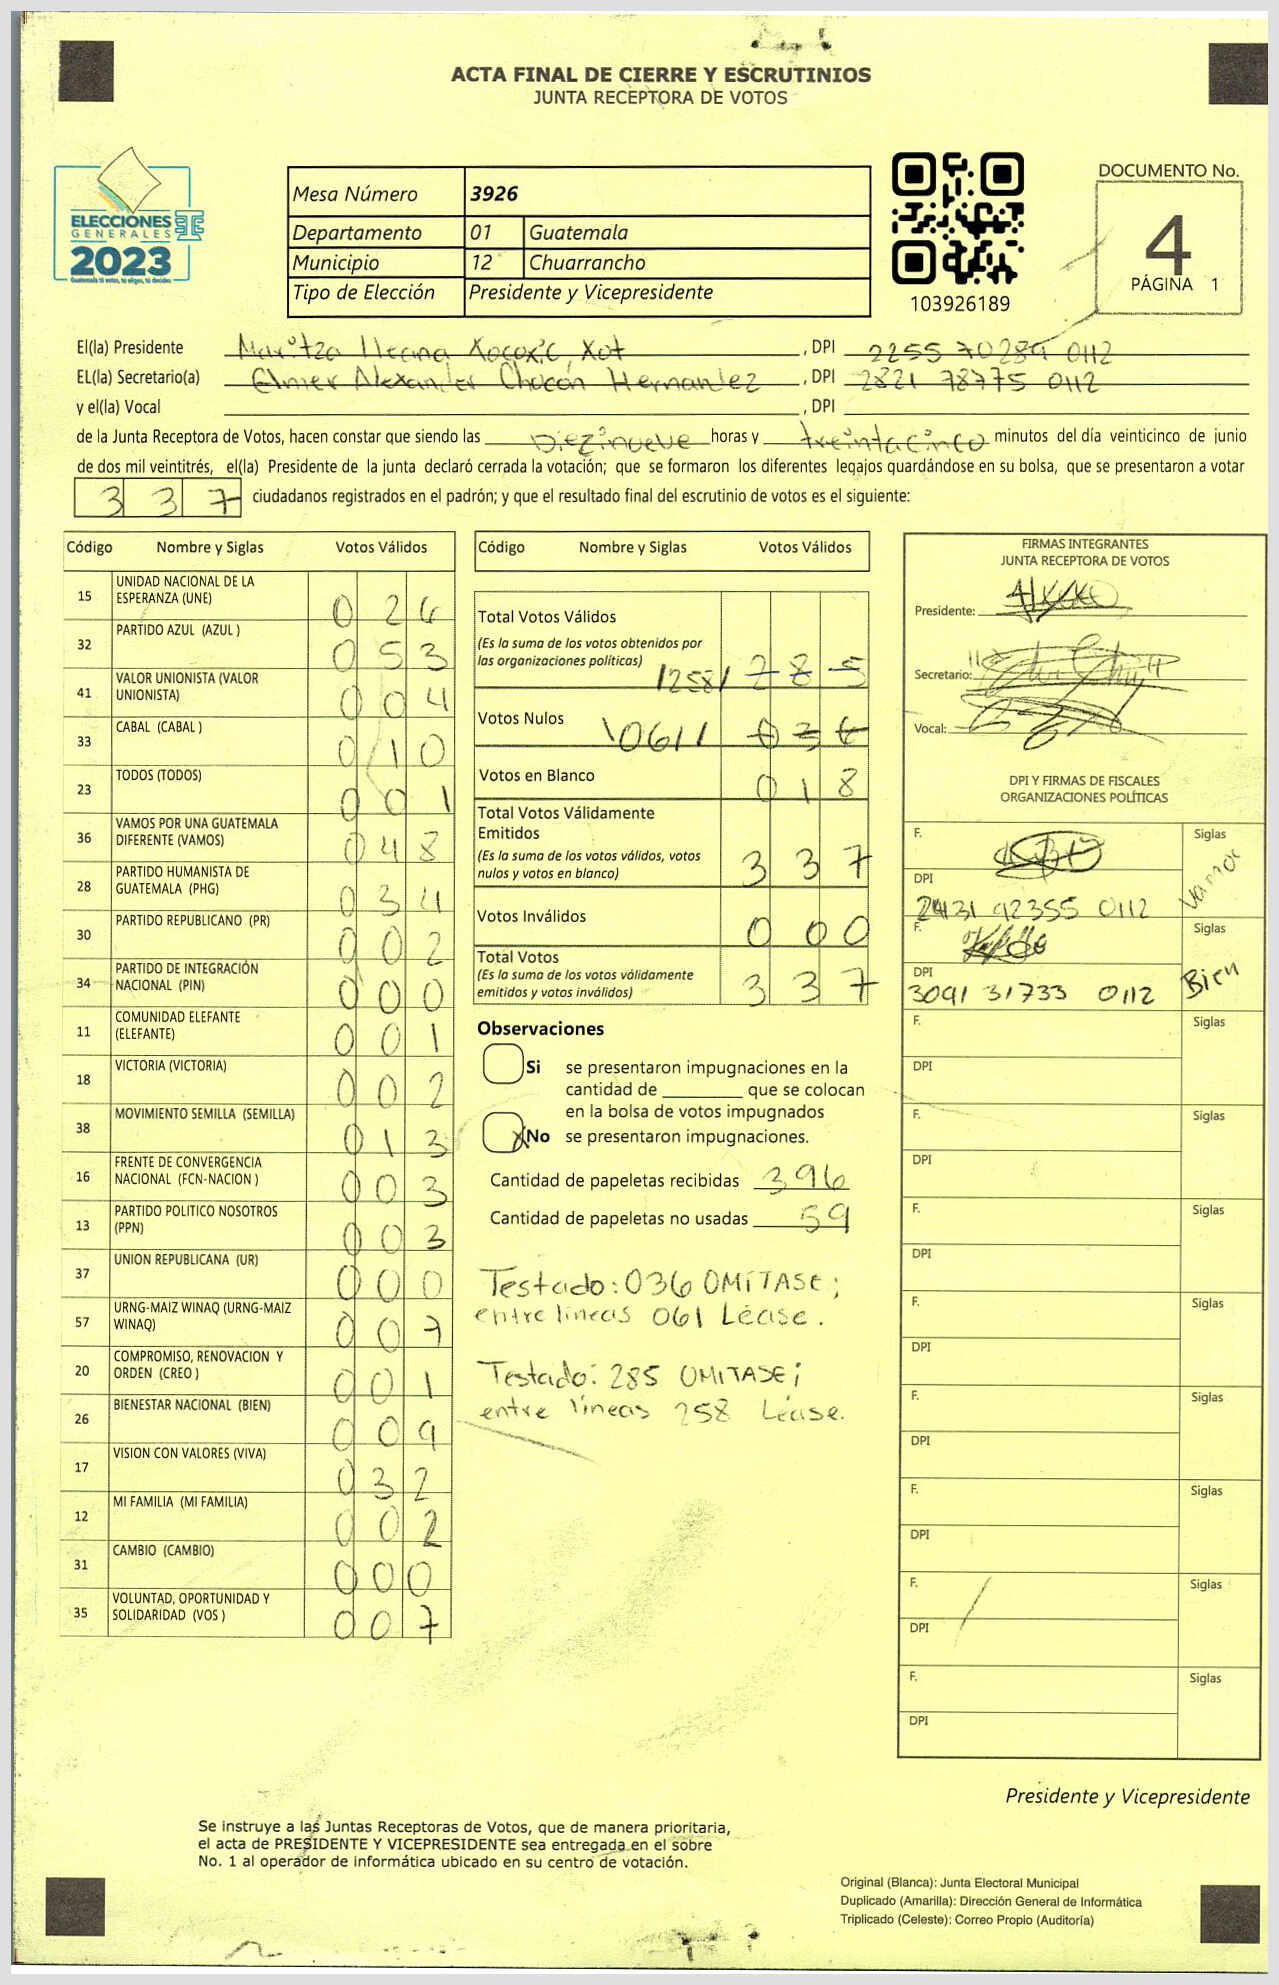 ACTA FINAL DE CIERRE Y ESCRUTINIOS
JUNTA RECEPTORA DE VOTOS
ELECCIONES
GENERALES
2023
Mesa Número 3926
Departamento 01 Guatemala
Municipio 12 Chuarrancho
Tipo de Elección Presidente y Vicepresidente
103926189
DOCUMENTO No.
4
PÁGINA 1
El(la) Presidente Maritza Ileana Xocoxic Xot, DPI 2255 70289 0112
EL(la) Secretario(a) Elmer Alexander Chocón Hernandez, DPI 2821 78775 0112
y el(la) Vocal , DPI
de la Junta Receptora de Votos, hacen constar que siendo las Diezinueve horas y treintacinco minutos del día veinticinco de junio
de dos mil veintitrés, el(la) Presidente de la junta declaró cerrada la votación; que se formaron los diferentes legajos quardándose en su bolsa, que se presentaron a votar
337 ciudadanos registrados en el padrón; y que el resultado final del escrutinio de votos es el siguiente:
Código Nombre y Siglas Votos Válidos
15 UNIDAD NACIONAL DE LA ESPERANZA (UNE) 026
32 PARTIDO AZUL (AZUL ) 053
41 VALOR UNIONISTA (VALOR UNIONISTA) 004
33 CABAL (CABAL ) 010
23 TODOS (TODOS) 001
36 VAMOS POR UNA GUATEMALA DIFERENTE (VAMOS) 048
28 PARTIDO HUMANISTA DE GUATEMALA (PHG) 034
30 PARTIDO REPUBLICANO (PR) 002
34 PARTIDO DE INTEGRACIÓN NACIONAL (PIN) 000
11 COMUNIDAD ELEFANTE (ELEFANTE) 001
18 VICTORIA (VICTORIA) 002
38 MOVIMIENTO SEMILLA (SEMILLA) 013
16 FRENTE DE CONVERGENCIA NACIONAL (FCN-NACION ) 003
13 PARTIDO POLITICO NOSOTROS (PPN) 003
37 UNION REPUBLICANA (UR) 000
57 URNG-MAIZ WINAQ (URNG-MAIZ WINAQ) 007
20 COMPROMISO, RENOVACION Y ORDEN (CREO ) 001
26 BIENESTAR NACIONAL (BIEN) 009
17 VISION CON VALORES (VIVA) 032
12 MI FAMILIA (MI FAMILIA) 002
31 CAMBIO (CAMBIO) 000
35 VOLUNTAD, OPORTUNIDAD Y SOLIDARIDAD (VOS ) 007
Código Nombre y Siglas Votos Válidos
Total Votos Válidos
(Es la suma de los votos obtenidos por
las organizaciones políticas) /258/ 285
Votos Nulos \061/ 036
Votos en Blanco 018
Total Votos Válidamente
Emitidos
(Es la suma de los votos válidos, votos
nulos y votos en blanco) 337
Votos Inválidos 000
Total Votos
(Es la suma de los votos válidamente
emitidos y votos inválidos) 337
Observaciones
Si se presentaron impugnaciones en la
cantidad de ________ que se colocan
en la bolsa de votos impugnados
X No se presentaron impugnaciones.
Cantidad de papeletas recibidas 396
Cantidad de papeletas no usadas 59
Testado: 036 OMÍTASE;
entre lineas 061 Léase.
Testado: 285 OMITASE;
entre líneas 258 Léase.
FIRMAS INTEGRANTES
JUNTA RECEPTORA DE VOTOS
Presidente:
Secretario:
Vocal:
DPI Y FIRMAS DE FISCALES
ORGANIZACIONES POLÍTICAS
F. Siglas
Vamos
DPI
2431 92355 0112
F. Siglas
DPI
3091 31733 0112 Bien
F. Siglas
DPI
F. Siglas
DPI
F. Siglas
DPI
F. Siglas
DPI
F. Siglas
DPI
F. Siglas
DPI
F. Siglas
DPI
F. Siglas
DPI
Presidente y Vicepresidente
Se instruye a las Juntas Receptoras de Votos, que de manera prioritaria,
el acta de PRESIDENTE Y VICEPRESIDENTE sea entregada en el sobre
No. 1 al operador de informática ubicado en su centro de votación.
Original (Blanca): Junta Electoral Municipal
Duplicado (Amarilla): Dirección General de Informática
Triplicado (Celeste): Correo Propio (Auditoría)